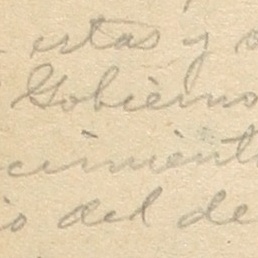 estas y
Gobierno
cimient
io del de